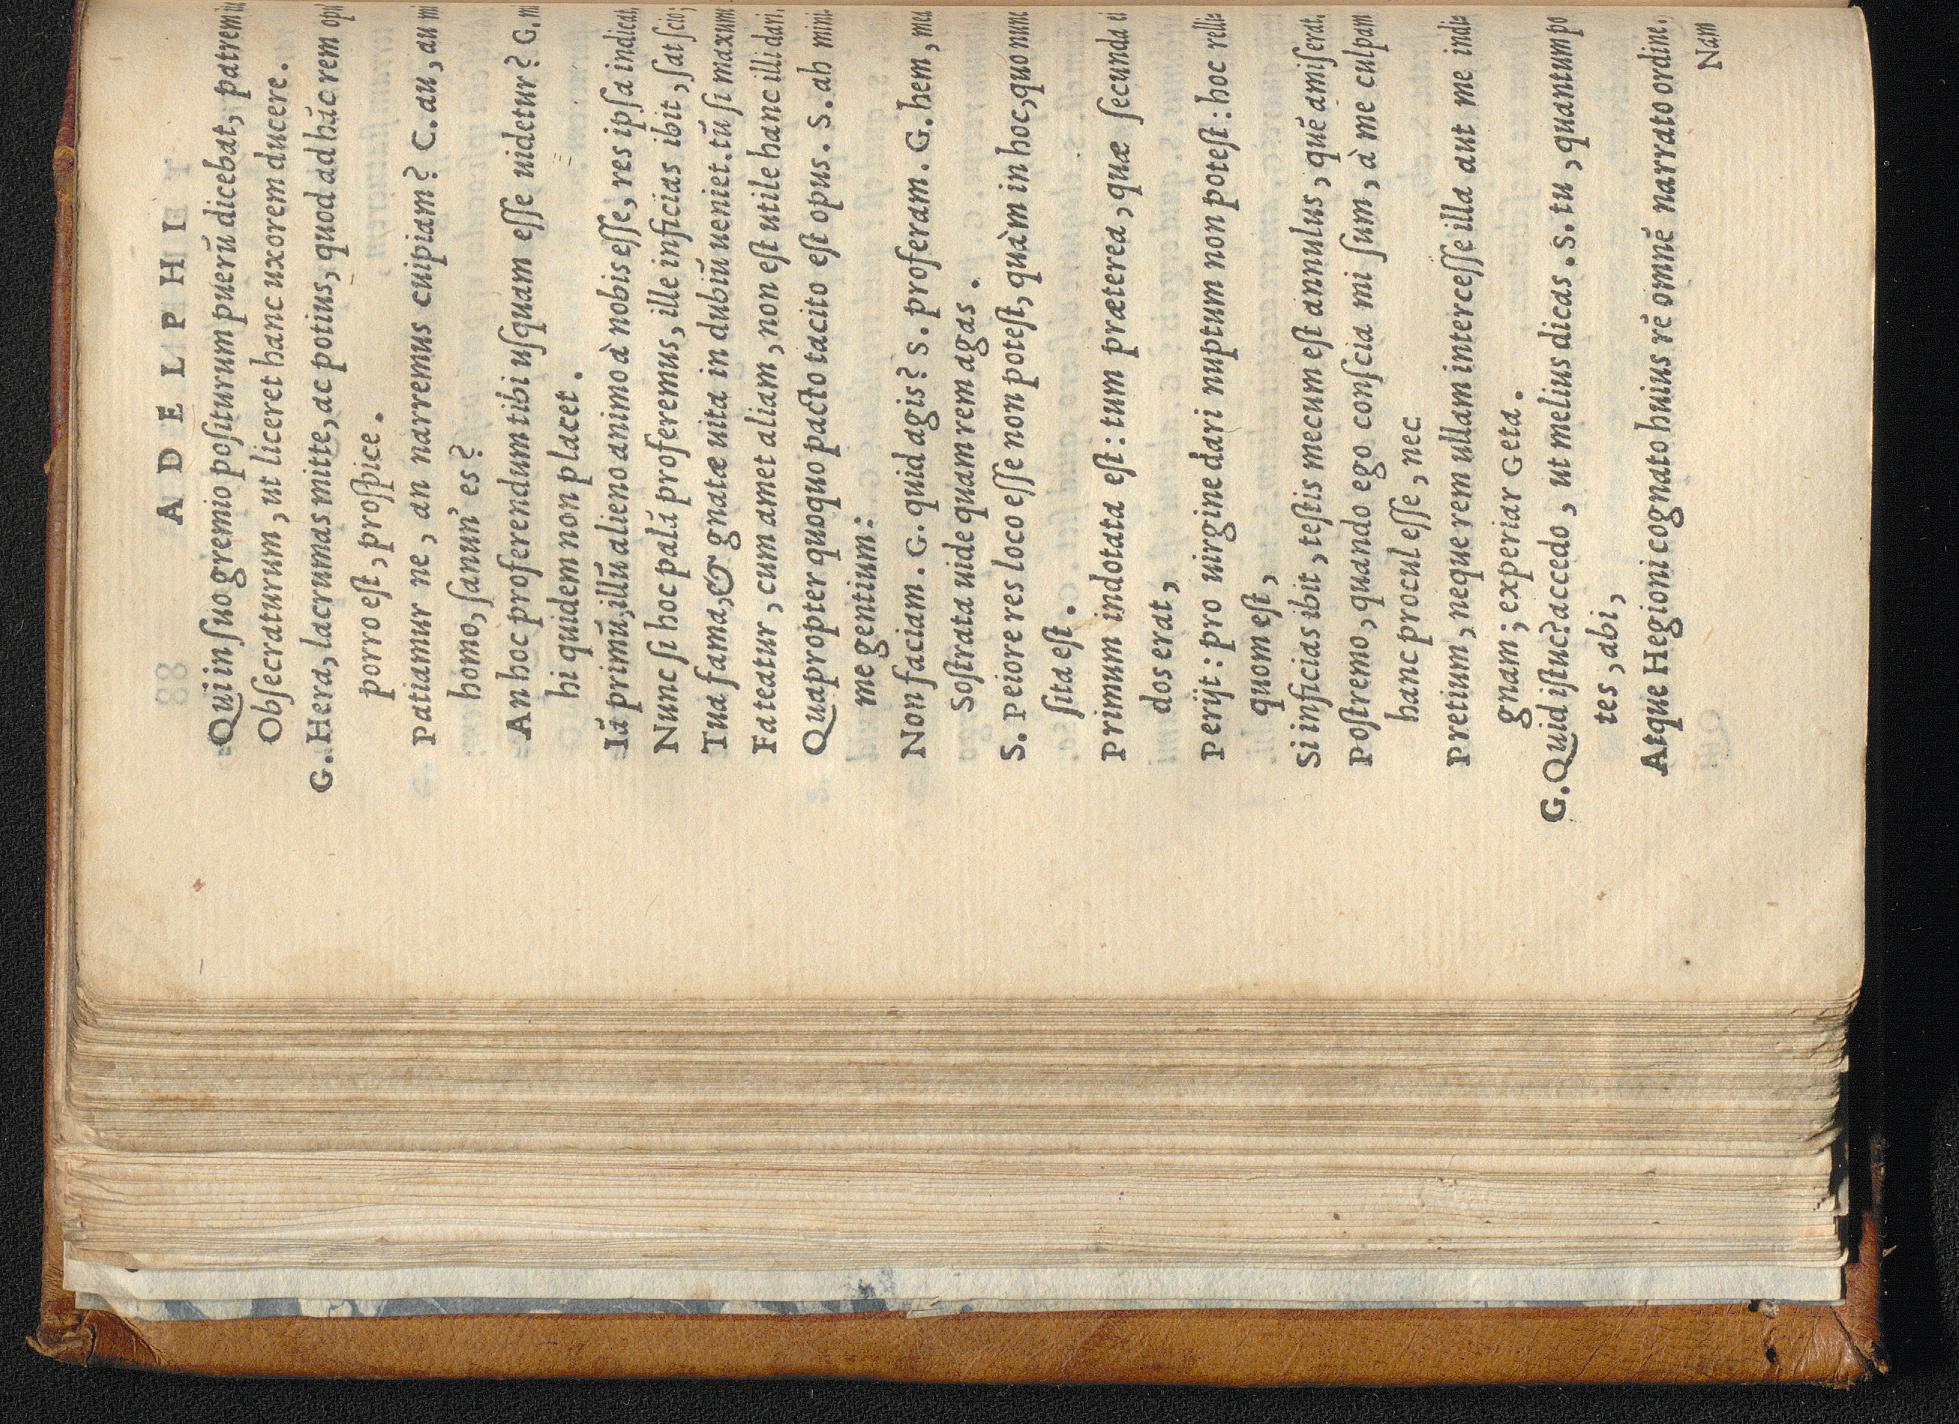 ADELPHI
Qui in ſuo gremio poſiturum puerū dicebat, patrem
Obſecraturum, ut liceret hanc uxorem ducere.
G. Hera, lacrumas mitte, ac potius, quod ad hāc rem opu
porro eſt, proſpice.
Patiamur ne, an narremus cuipiam? C. au, au mi
homo, ſanun' es?
An hoc proferendum tibi uſquam eſſe uidetur? G. mi
hi quidem non placet.
Iā primū, illū alieno animo à nobis eſſe, res ipſa indicat.
Nunc ſi hoc palā proferemus, ille inficias ibit, ſat ſcio;
Tua fama, & gnatæ uita in dubiū ueniet. tū ſi maxume
Fateatur, cum amet aliam, non eſt utile hanc illi dari.
Quapropter quoquo pacto tacito eſt opus. S. ah mini-
me gentium:
Non faciam. G. quid agis? S. proferam. G. hem, mea
Soſtrata uide quam rem agas.
S. Peiore res loco eſſe non poteſt, quàm in hoc, quo nunc
ſita eſt.
Primum indotata eſt: tum præterea, quæ ſecunda ei
dos erat,
Perijt: pro uirgine dari nuptum non poteſt: hoc relli-
quom eſt,
Si inficias ibit, teſtis mecum eſt annulus, quē amiſerat.
Poſtremo, quando ego conſcia mi ſum, à me culpam
hanc procul eſſe, nec
Pretium, neque rem ullam interceſſe illa aut me indi-
gnam; experiar Geta.
G. Quid iſtuc? accedo, ut melius dicas. S. tu, quantum po
tes, abi,
Atque Hegioni cognato huius rē omnē narrato ordine.
Nam